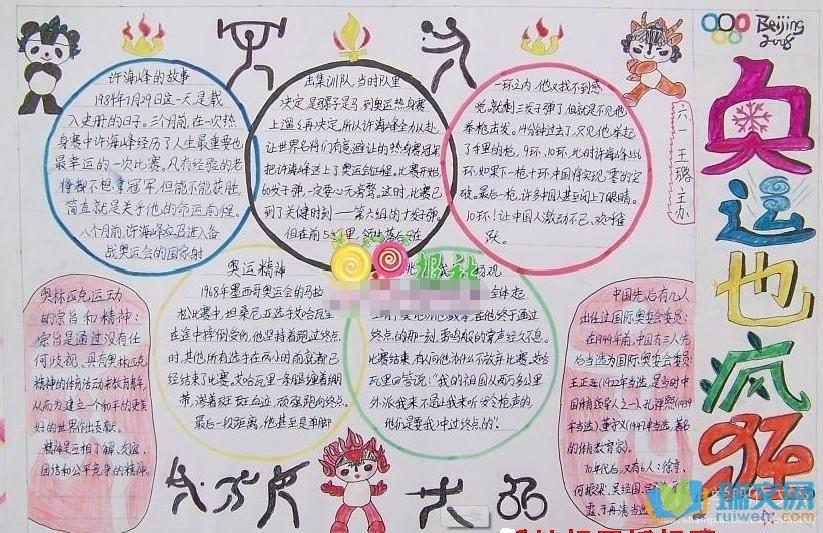 许海峰的故事
1984年7月29日这一天是载
入史册的日子。三个月前,在一次热
身赛中许海峰经历了人生最重要也
最幸运的一次比赛。凡有经验的老
将我不担拿冠军,但能不能获胜,
简直就是关乎他的命运前程。
八个月前许海峰应召进入备
战奥运会的国家射
击集训队,当时队里
决定,是骡子是马,到奥运热身赛
上遛遛再决定,所以许海峰全力以赴
让世界名将们
把许海峰送上了奥运会征程。比赛开始
的发子弹,一定要心无旁骛。这时,比赛已
到了关键时刻——第六组的十发子弹。
但在前5
一环之内,他又找不到感
觉,就剩三发子弹了,但就是不见他
举枪击发。4分钟过去了,只见他举起
了手里的枪,9环、10环,此时许海峰556
环,如果下一枪十环,中国将实现零的突
破。最后一枪,许多中国人甚至闭上了眼睛。
10环!让中国人激动不已、欢呼雀
跃。
六一 王璐主办
Beijing
2008
奥运也疯狂
奥运精神
1968年墨西哥奥运会的马拉
松比赛中,坦桑尼亚选手艾哈瓦里
在途中摔倒受伤,他坚持着跑过终点
时,其他所有选手在两小时前就都已
经结束了比赛。艾哈瓦里一条腿缠着绷
带,渗着斑斑血迹,顽强跑向终点。
最后一段距离,他甚至是单脚
报社
全体起
在他终于通过
终点的那一刻,雷鸣般的掌声经久不息。
比赛结束,有人问他为什么不放弃比赛。艾哈
瓦里回答说:“我的祖国从两万多公里
外派我来不是让我来听发令枪声的,
他们是要我冲过终点的”。
奥林匹克运动
的宗旨和精神:
宗旨是通过没有任
何歧视、具有奥林匹克
精神的体育活动来教育青年,
从而为建立一个和平的更美
好的世界作出贡献。
精神是互相了解、友谊、
团结和公平竞争的精神。
中国先后有几人
出任过国际奥委会委员:
在1949年前,中国有三人先
后当选为国际奥委会委员:
王正廷(1922年当选,是当时中
国体育领导人之一)、孔祥熙(1939
年当选)、董守义(1947年当选,著名
的体育教育家)。
70年代后,又有6人:徐音、
何振梁、吴经国、
于再清当选
瑞文网
ruiwen.com